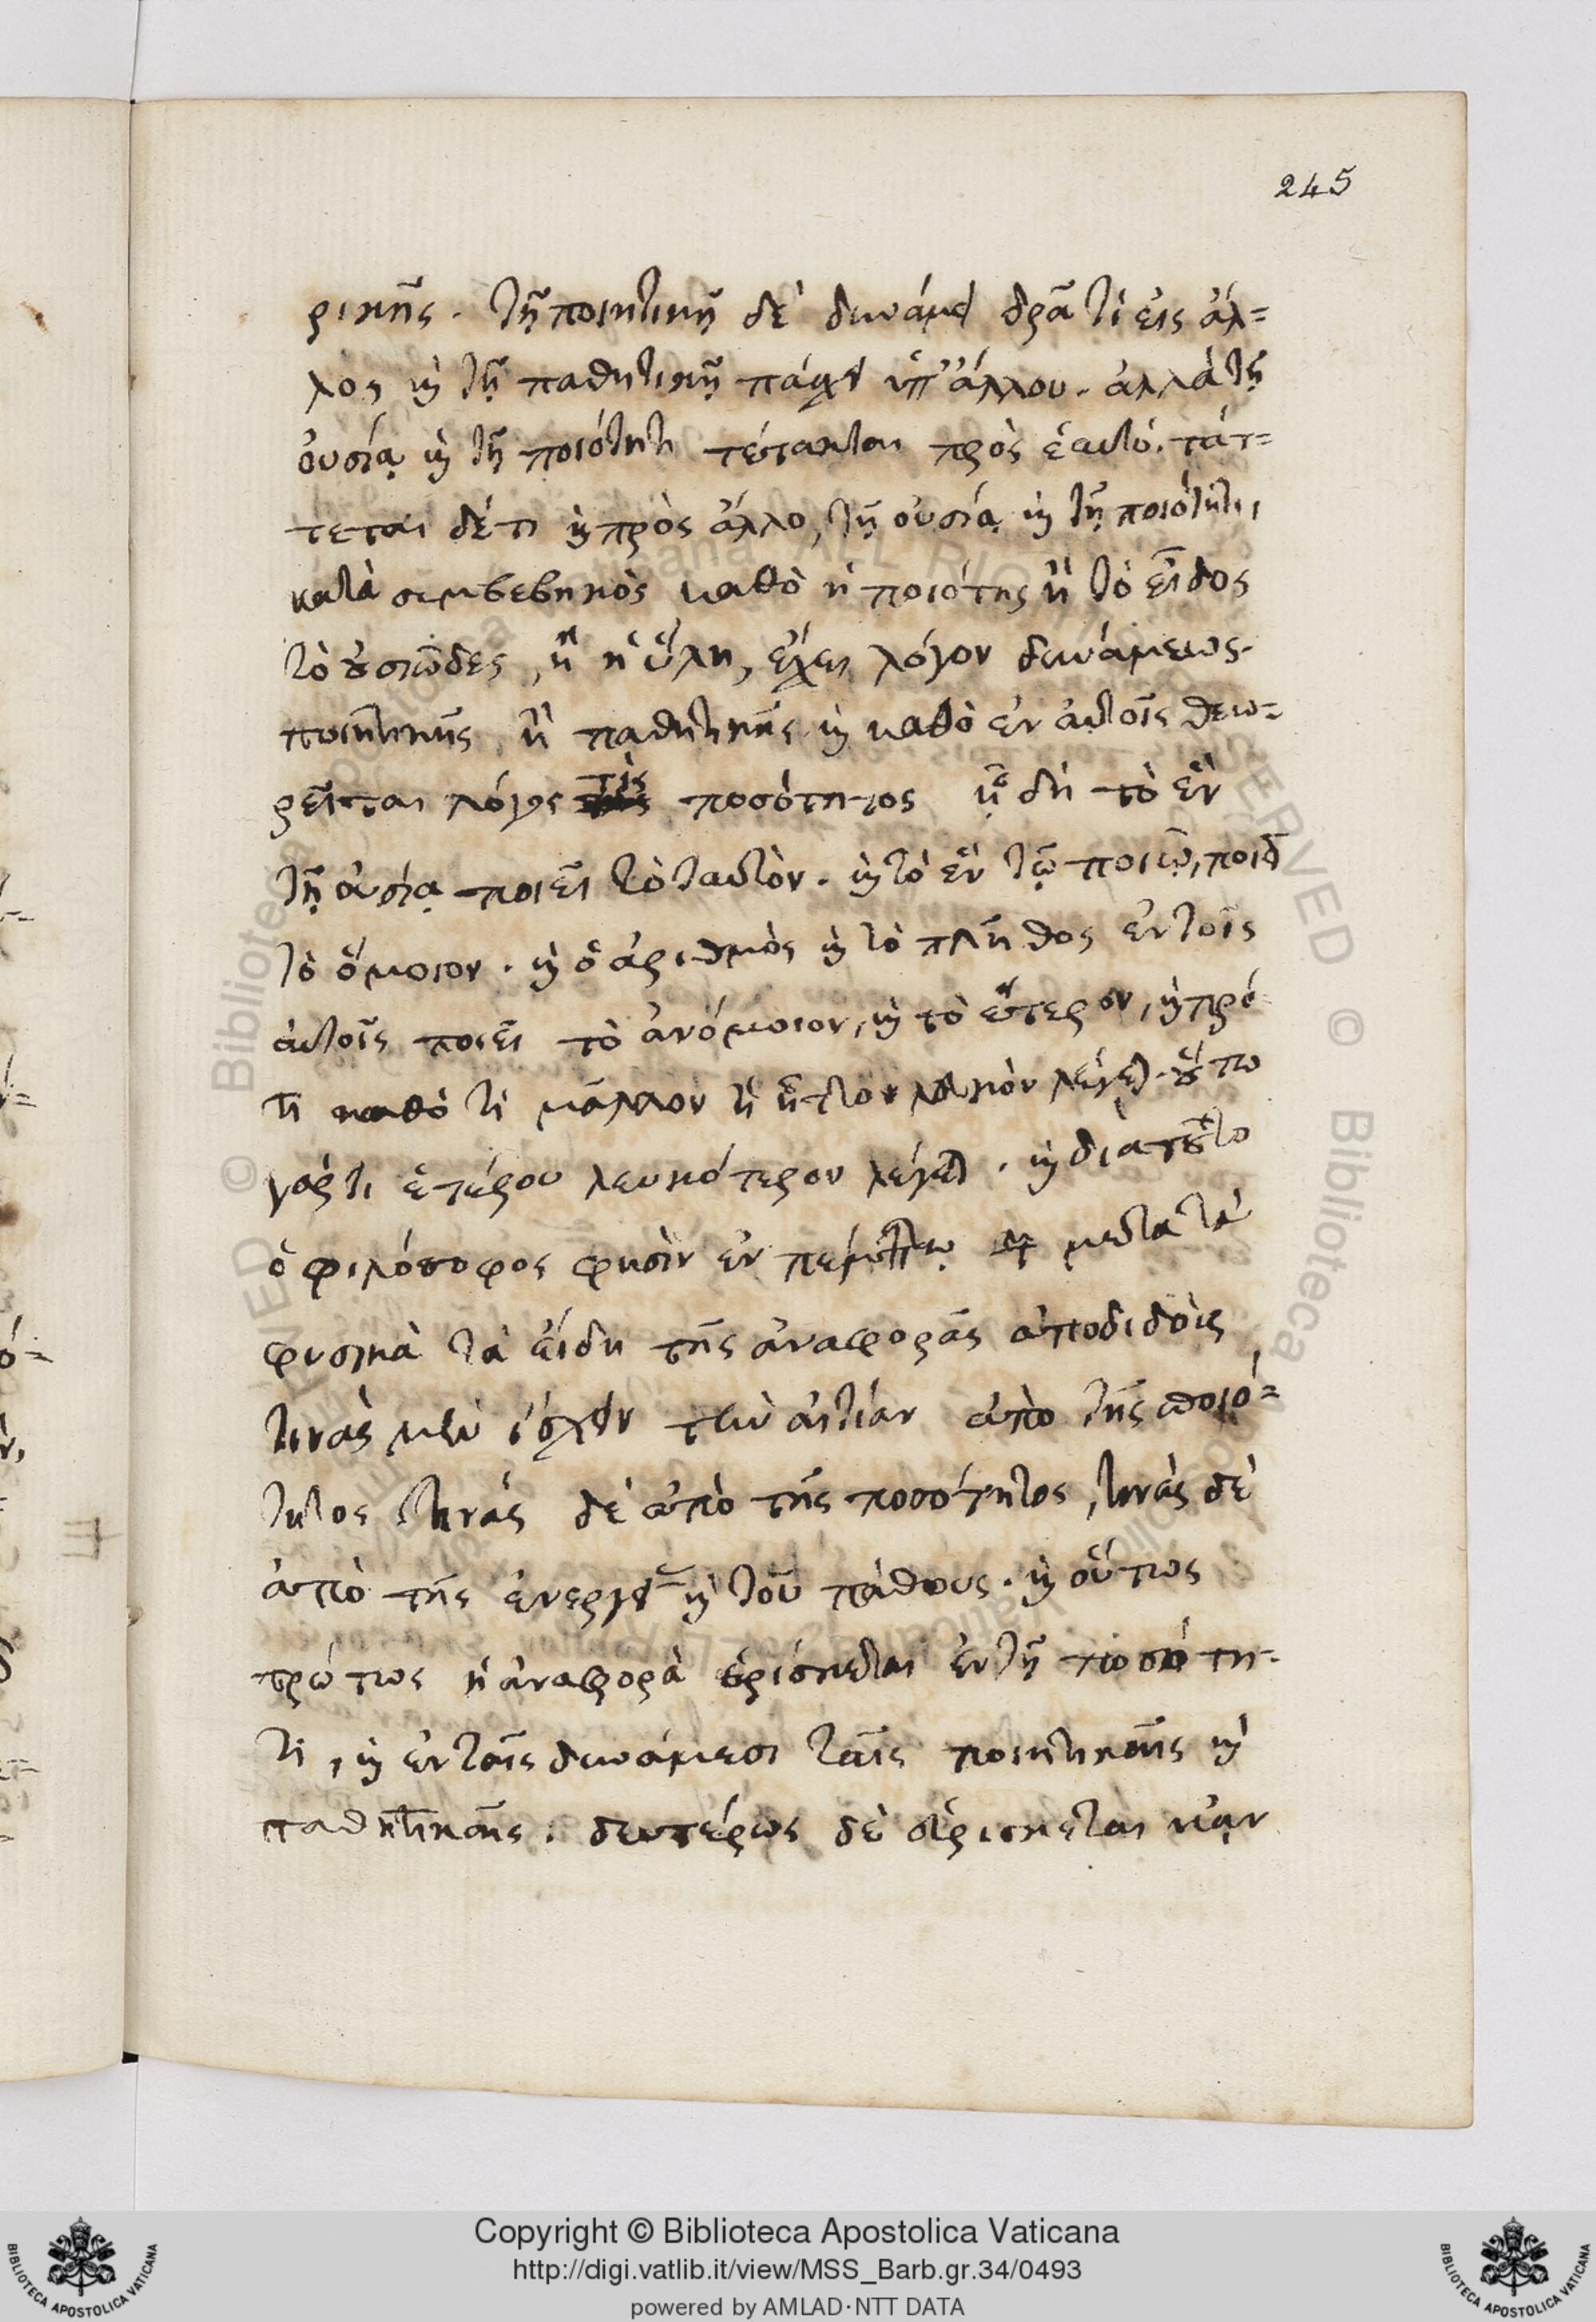 245
ρικῆς. τῇ ποιητικῇ δὲ δυνάμει δρᾷ τὶ εἰς ἄλ=
λος καὶ τῇ παθητικῇ πάσχει ὑπ' ἄλλου. ἀλλὰ τῇ
οὐσίᾳ καὶ τῇ ποιότητι τέτακται πρὸς ἑαυτό. τάτ=
τεται δέ τι καὶ πρὸς ἄλλο, τῇ οὐσίᾳ καὶ τῇ ποιότητι,
κατὰ συμβεβηκὸς καθὸ ἡ ποιότης ἢ τὸ εἶδος
τὸ οὐσιῶδες, ἢ ἡ ὕλη, ἔχει λόγον δυνάμεως
ποιητικῆς ἢ παθητικῆς καὶ καθὸ ἐν αὐτοῖς θεω=
ρεῖται λόγος τὶς ποσότητος ᾗ δὴ τὸ ἓν
τῇ οὐσίᾳ ποιεῖ τὸ ταυτὸν. καὶ τὸ ἓν τῷ ποιῷ, ποιεῖ
τὸ ὅμοιον. καὶ ὁ ἀριθμὸς καὶ τὸ πλῆθος ἐν τοῖς
αὐτοῖς ποιεῖ τὸ ἀνόμοιον, καὶ τὸ ἕτερον, καὶ πρό
τι καθό τι μᾶλλον ἢ ἧττον λευκὸν λέγεται. οὕτω
γάρ τι ἑτέρου λευκότερον λέγεται. καὶ διὰ τοῦτο
ὁ φιλόσοφος φησὶν ἐν πέμπτῳ τῶν μετὰ τὰ
φυσικὰ τὰ εἴδη τῆς ἀναφορᾶς ἀποδιδοὺς
τινὰς μὲν ἴσχειν τὴν αἰτίαν ἀπὸ τῆς ποιό=
τητος τινὰς δὲ ἀπὸ τῆς ποσότητος, τινὰς δὲ
ἀπὸ τῆς ἐνεργείας καὶ τοῦ πάθους. καὶ οὕτως
πρώτως ἡ ἀναφορὰ εὑρίσκεται ἐν τῇ ποσότη-
τι, καὶ ἐν ταῖς δυνάμεσι ταῖς ποιητικαῖς καὶ
παθητικαῖς. δευτέρως δὲ εὑρίσκεται κἂν
Copyright © Biblioteca Apostolica Vaticana
http://digi.vatlib.it/view/MSS_Barb.gr.34/0493
powered by AMLAD·NTT DATA